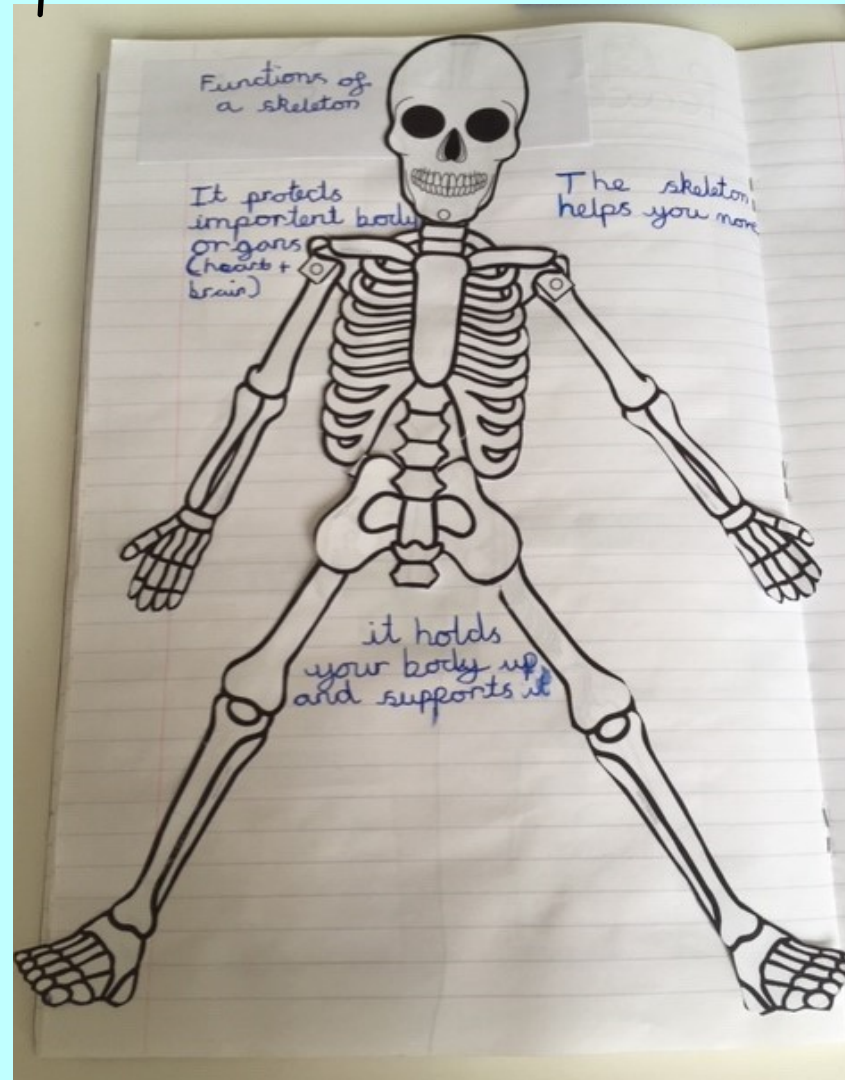 Functions of
a skeleton
It protects
importent body
organs
(heart +
brain)
The skeleton
helps you move
it holds
your body up
and supports it